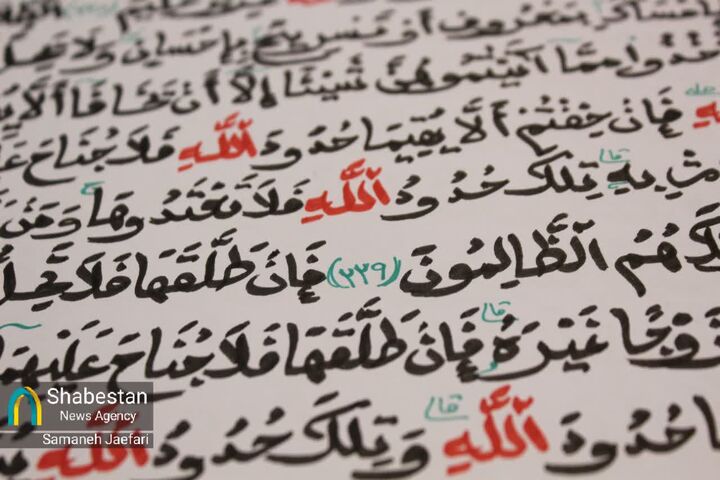 فَإِمْسَاكٌ بِمَعْرُوفٍ أَوْ تَسْرِيحٌ بِإِحْسَانٍ وَلَا يَحِلُّ
تَأْخُذُوا مِمَّا آتَيْتُمُوهُنَّ شَيْئًا إِلَّا أَنْ يَخَافَا أَلَّا
فَإِنْ خِفْتُمْ أَلَّا يُقِيمَا حُدُودَ اللَّهِ فَلَا جُنَاحَ
بِهِ تِلْكَ حُدُودُ اللَّهِ فَلَا تَعْتَدُوهَا وَمَنْ
هُمُ الظَّالِمُونَ (٢٢٩) فَإِنْ طَلَّقَهَا فَلَا تَحِلُّ
زَوْجًا غَيْرَهُ فَإِنْ طَلَّقَهَا فَلَا جُنَاحَ عَلَيْهِمَا
حُدُودَ اللَّهِ وَتِلْكَ حُدُودُ اللَّهِ
Shabestan
News Agency
Samaneh Jaefari